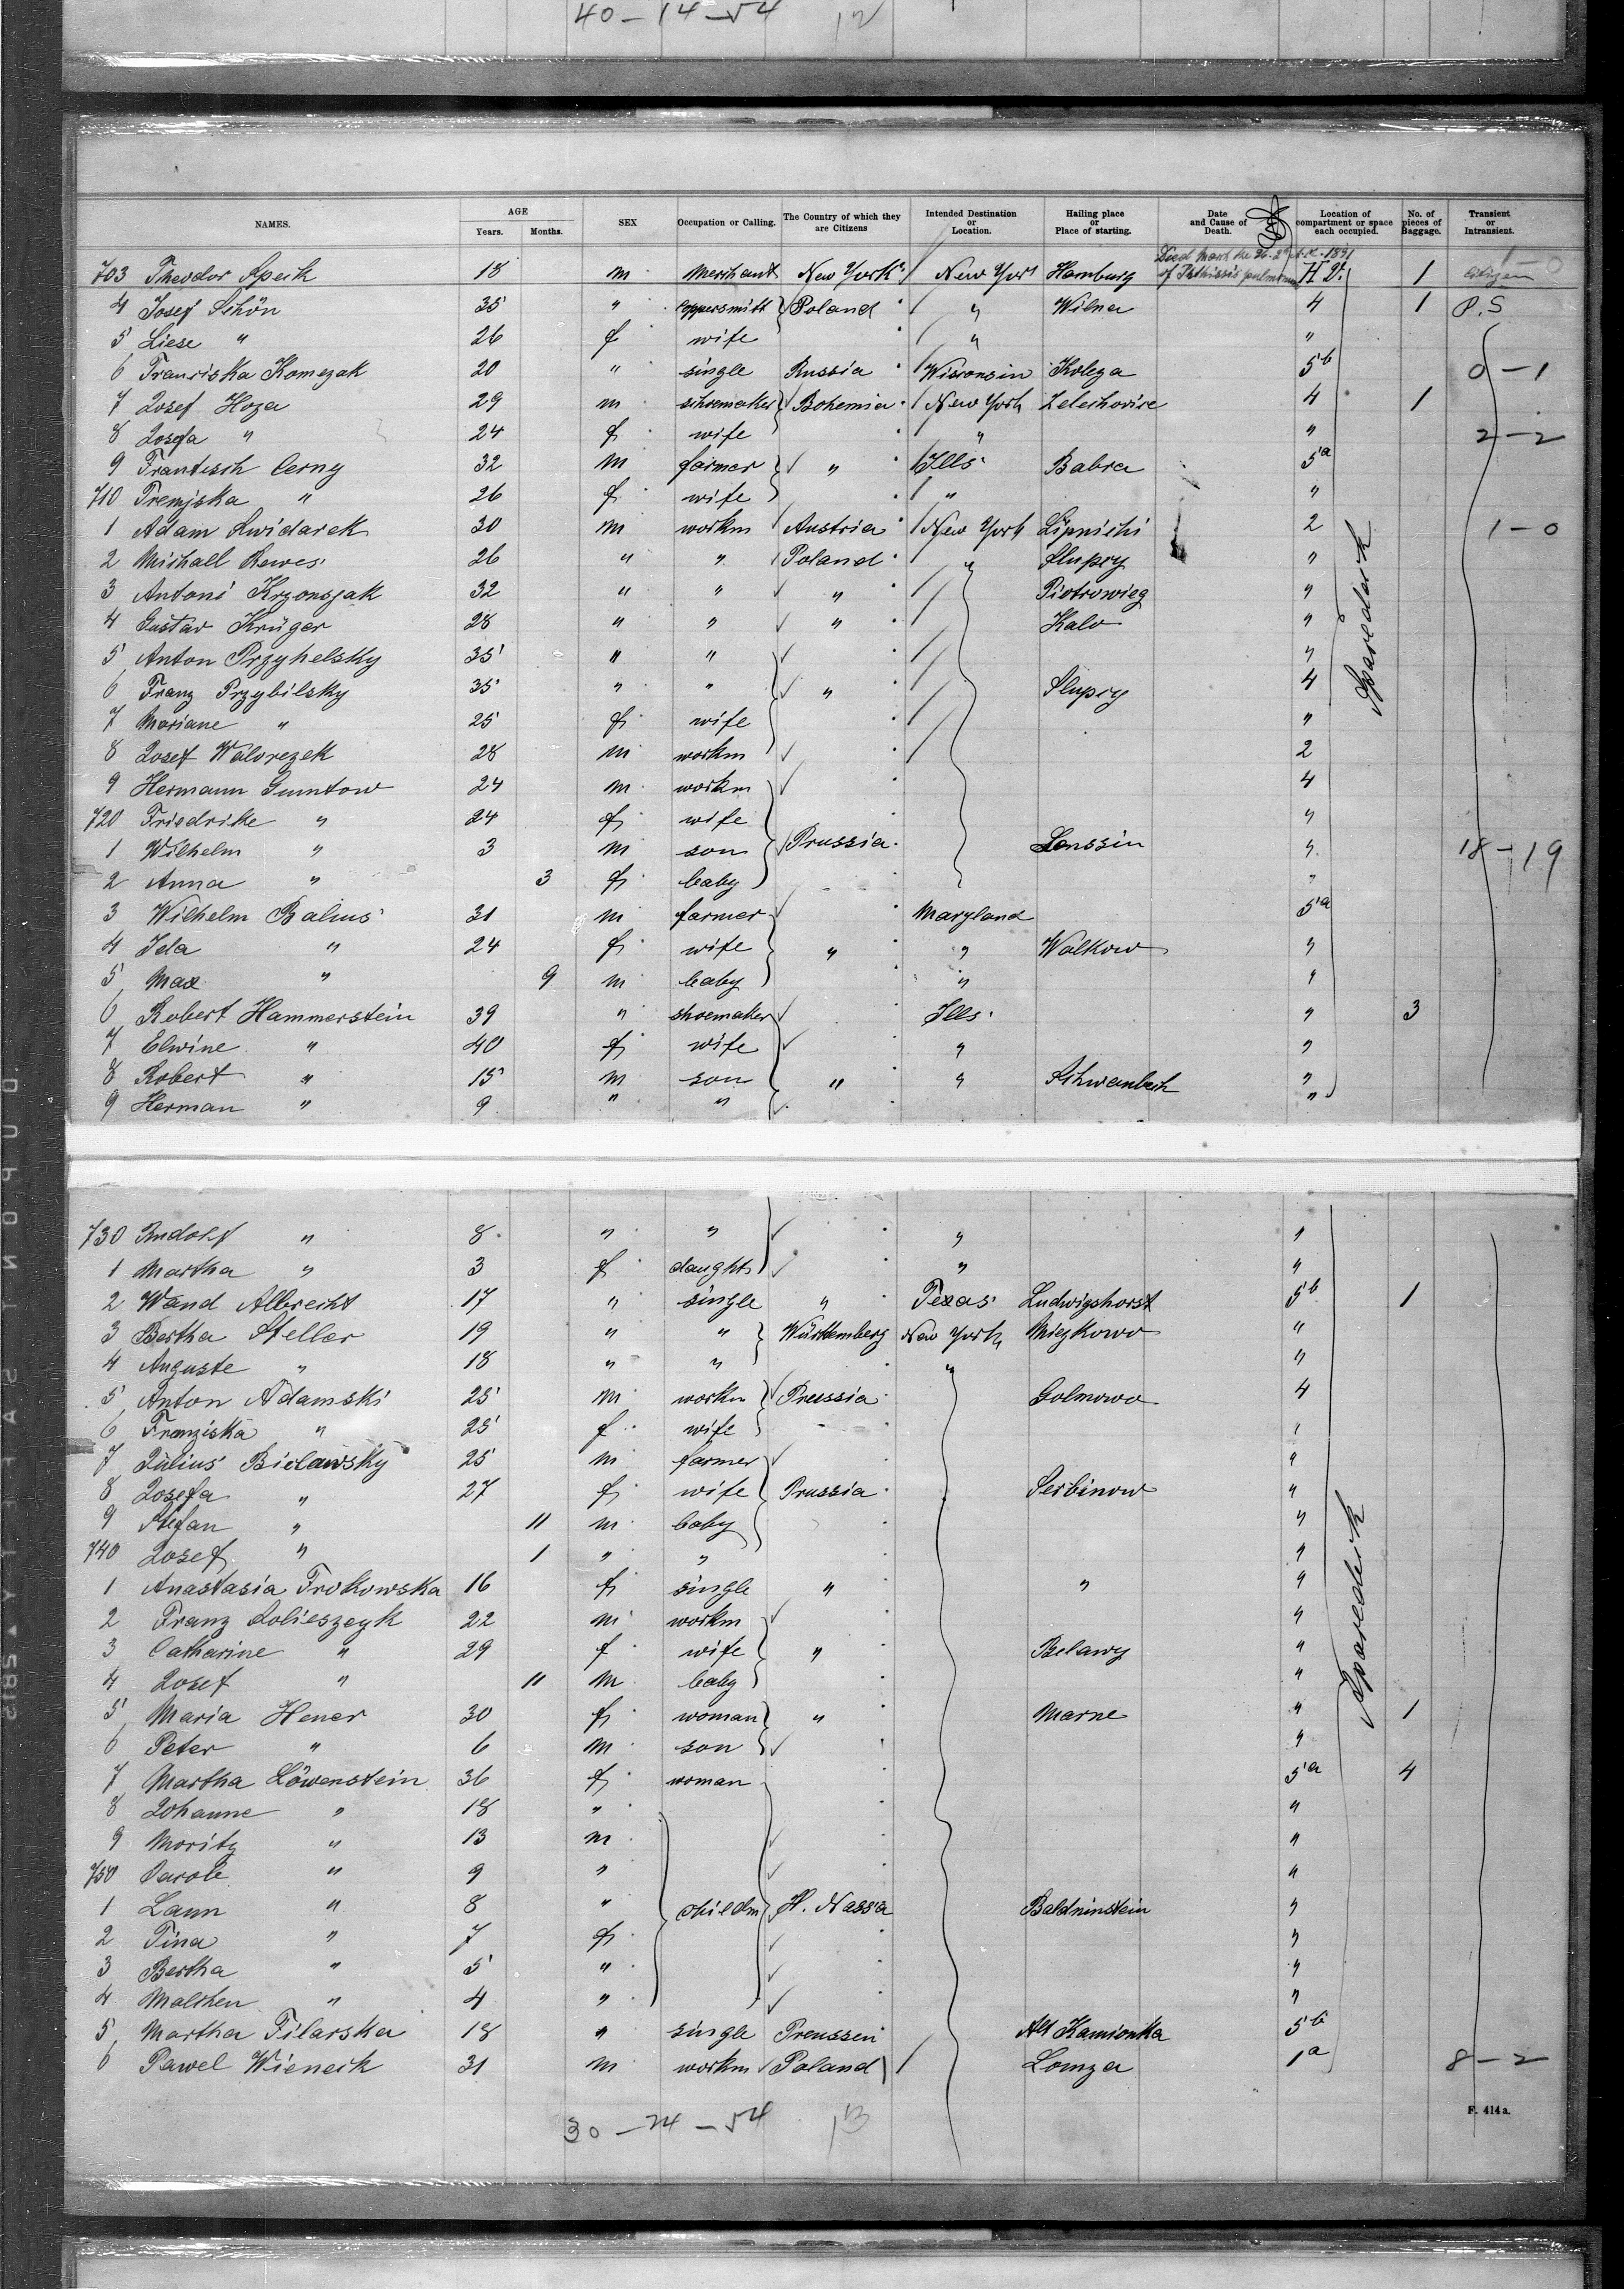 40 - 14 - 54 12
NAMES. AGE Years. Months. SEX Occupation or Calling. The Country of which they are Citizens Intended Destination or Location. Hailing place or Place of starting. Date and Cause of Death. Location of compartment or space each occupied. No. of pieces of Baggage. Transient or Intransient.
703 Theodor Speik 18 m Merchant New York New York Hamburg Died March the 26. 1891 of Pthissis H 2. 1 citizen 1-0
4 Josef Schön 35 " Coppersmitt Poland " Wilna 4 1 P.S
5 Liese " 26 f wife " "
6 Franciska Komezak 20 " single Russia Wisconsin Kolega 5b 0-1
7 Josef Hoza 29 m schoemaker Bohemia New York Zelechovice 4 1
8 Josefa " 24 f wife " " 2-2
9 Frantisch Cerny 32 m farmer " Ills Babra 5a
710 Fremjska " 26 f wife " "
1 Adam Swidarek 30 m workm Austria New York Lipnichi 2 1-0
2 Michall Rewes 26 " " Poland " Slupcy "
3 Antoni Krzonsjak 32 " " " Piotrowieg "
4 Gustav Krüger 28 " " " Kalo "
5 Anton Przyhelsky 35 " " "
6 Franz Przybilsky 35 " " " Slupcy 4
7 Mariane " 25 f wife "
8 Josef Walorezek 28 m workm 2
9 Hermann Gumtow 24 m workm 4
720 Friedrike " 24 f wife "
1 Wilhelm " 3 m son Prussia Lenssin " 18-19
2 Anna " 3 f baby "
3 Wilhelm Balius 31 m farmer Maryland 5a
4 Ida " 24 f wife " " Walkow "
5 Max " 9 m baby " "
6 Robert Hammerstein 39 " shoemaker Ills. " 3
7 Elwine " 40 f wife " "
8 Robert " 15 m son " " Schwenbeck "
9 Herman " 9 " " "
730 Rudolf " 8 " " " "
1 Martha " 3 f daught " "
2 Wand Albrecht 17 " single " Texas Ludwigshorst 5b 1
3 Bertha Steller 19 " " Württemberg New York Miezkowo "
4 Auguste " 18 " " " "
5 Anton Adamski 25 m workm Preussia Golmowo 4
6 Franziska " 25 f wife "
7 Julius Bielawsky 25 m farmer "
8 Josefa " 27 f wife Prussia Serbinow "
9 Stefan " 11 m baby "
740 Josef " 1 " " "
1 Anastasia Trokowska 16 f single " " "
2 Franz Lolieszeyk 22 m workm "
3 Catharine " 29 f wife " Belawy "
4 Josef " 11 m baby "
5 Maria Hener 30 f woman " Marne " 1
6 Peter " 6 m son "
7 Martha Löwenstein 36 f woman 5a 4
8 Johanne " 18 " "
9 Moritz " 13 m "
750 Carole " 9 " "
1 Laun " 8 " childrn H. Nassia Baldninstein "
2 Tina " 7 f "
3 Bertha " 5 " "
4 Malchen " 4 " "
5 Martha Filarska 18 " single Preussen Alt Kamionka 5b
6 Pawel Wieneck 31 m workm Poland Lomza 1a 8-2
Sparedeck
Sparedeck
30 - 24 - 54 13
F. 414a.